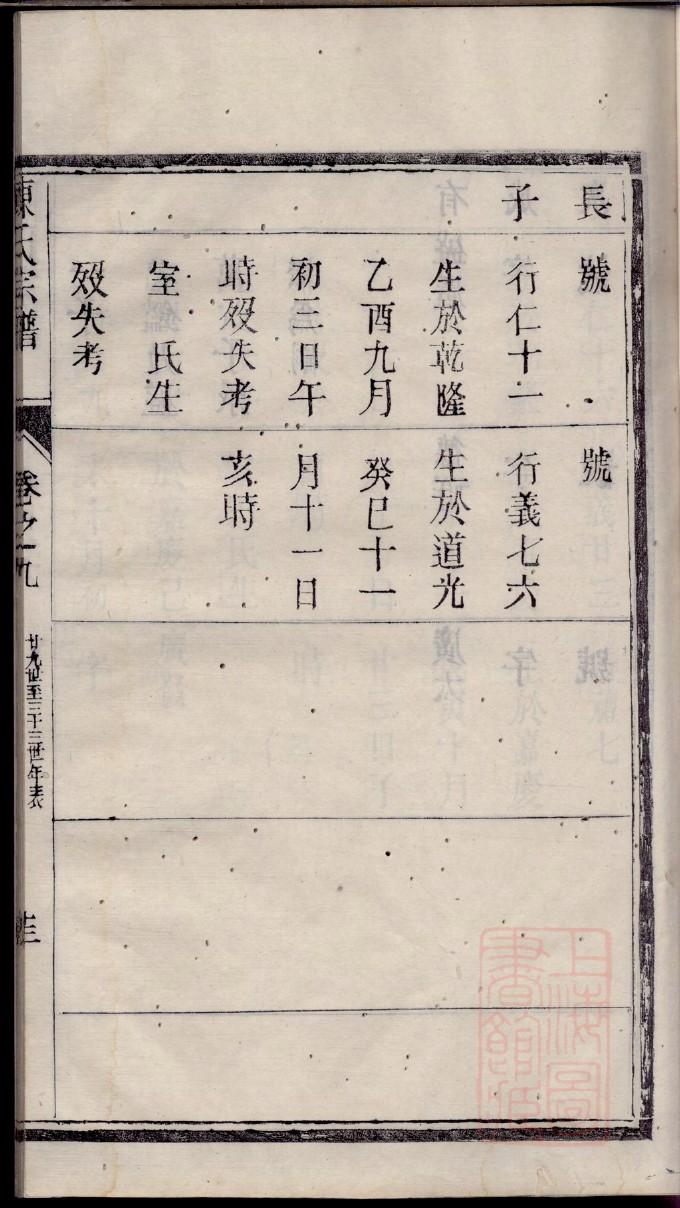 長
子
號
行仁十一
生於乾隆
乙酉九月
初三日午
時歿失考
室 氏生
歿失考
號
行義七六
生於道光
癸巳十一
月十一日
亥時
陳氏宗譜
卷之九
廿九世至三十三世年表
上海圖
書館藏